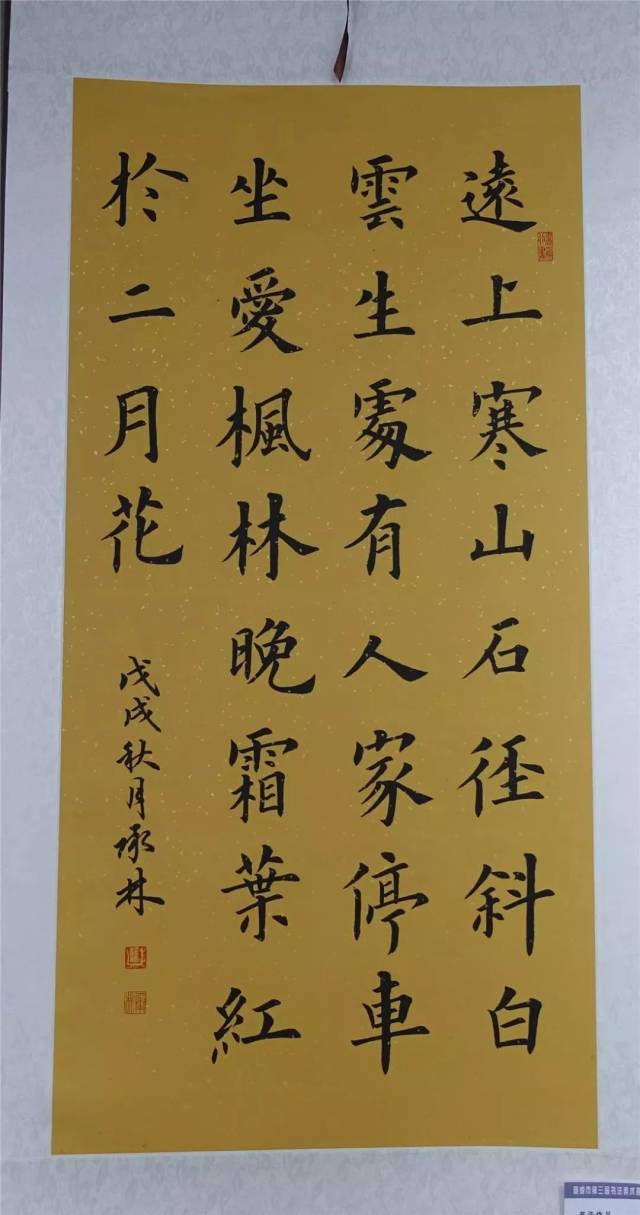 遠上寒山石徑斜白
雲生處有人家停車
坐愛楓林晚霜葉紅
於二月花
戊戌秋月承林